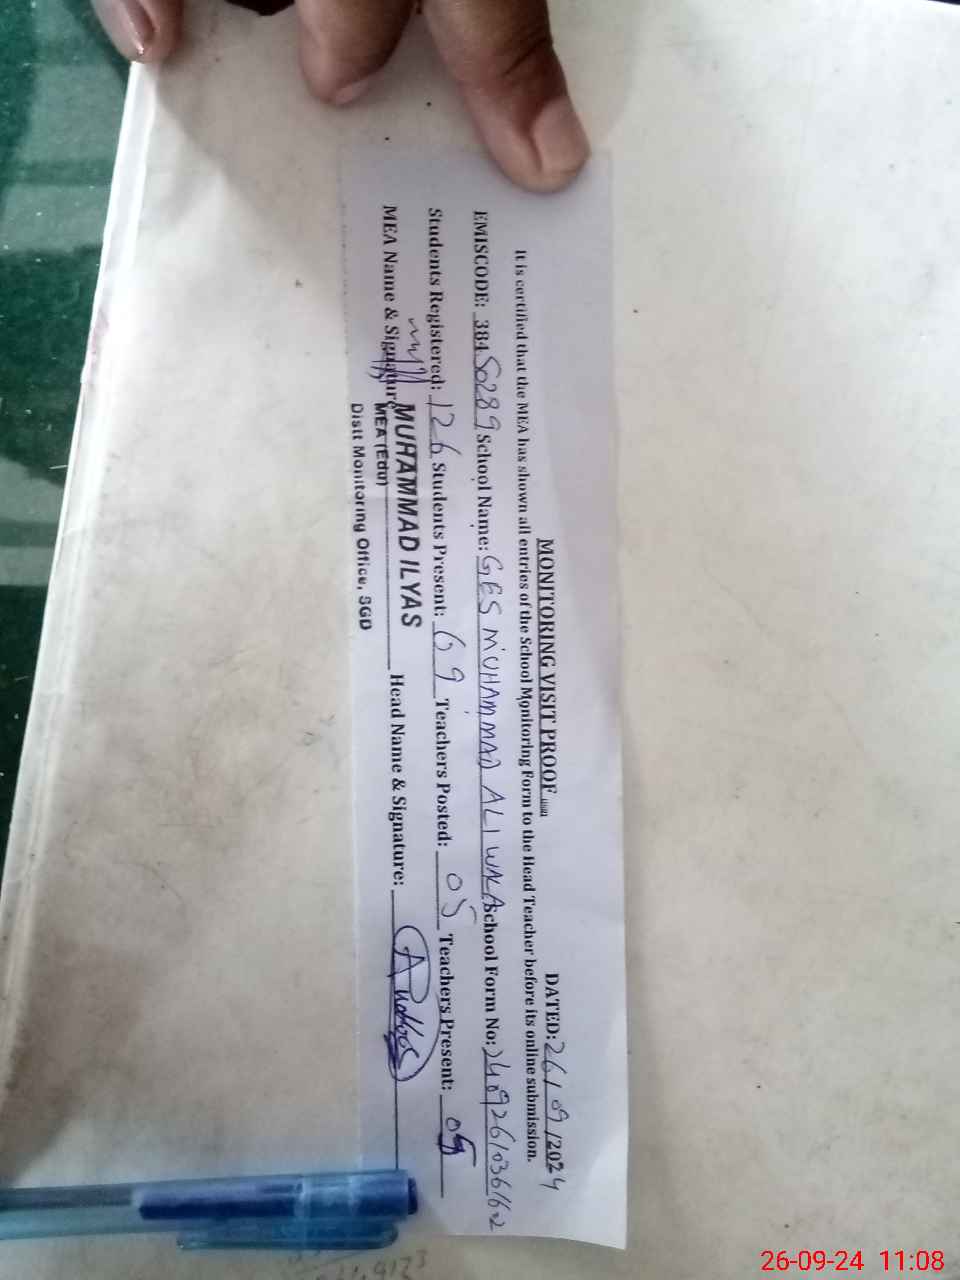 MONITORING VISIT PROOF
DATED: 26/09/2024
It is certified that the MEA has shown all entries of the School Monitoring Form to the Head Teacher before its online submission.
EMISCODE: 38450289 School Name: GES MUHAMMAD ALI WALA School Form No: 240926103616
Students Registered: 126 Students Present: 69 Teachers Posted: 05 Teachers Present: 05
MEA Name & Signature Head Name & Signature:
MUHAMMAD ILYAS
MEA (Edu)
Distt Monitoring Office, SGD
26-09-24 11:08